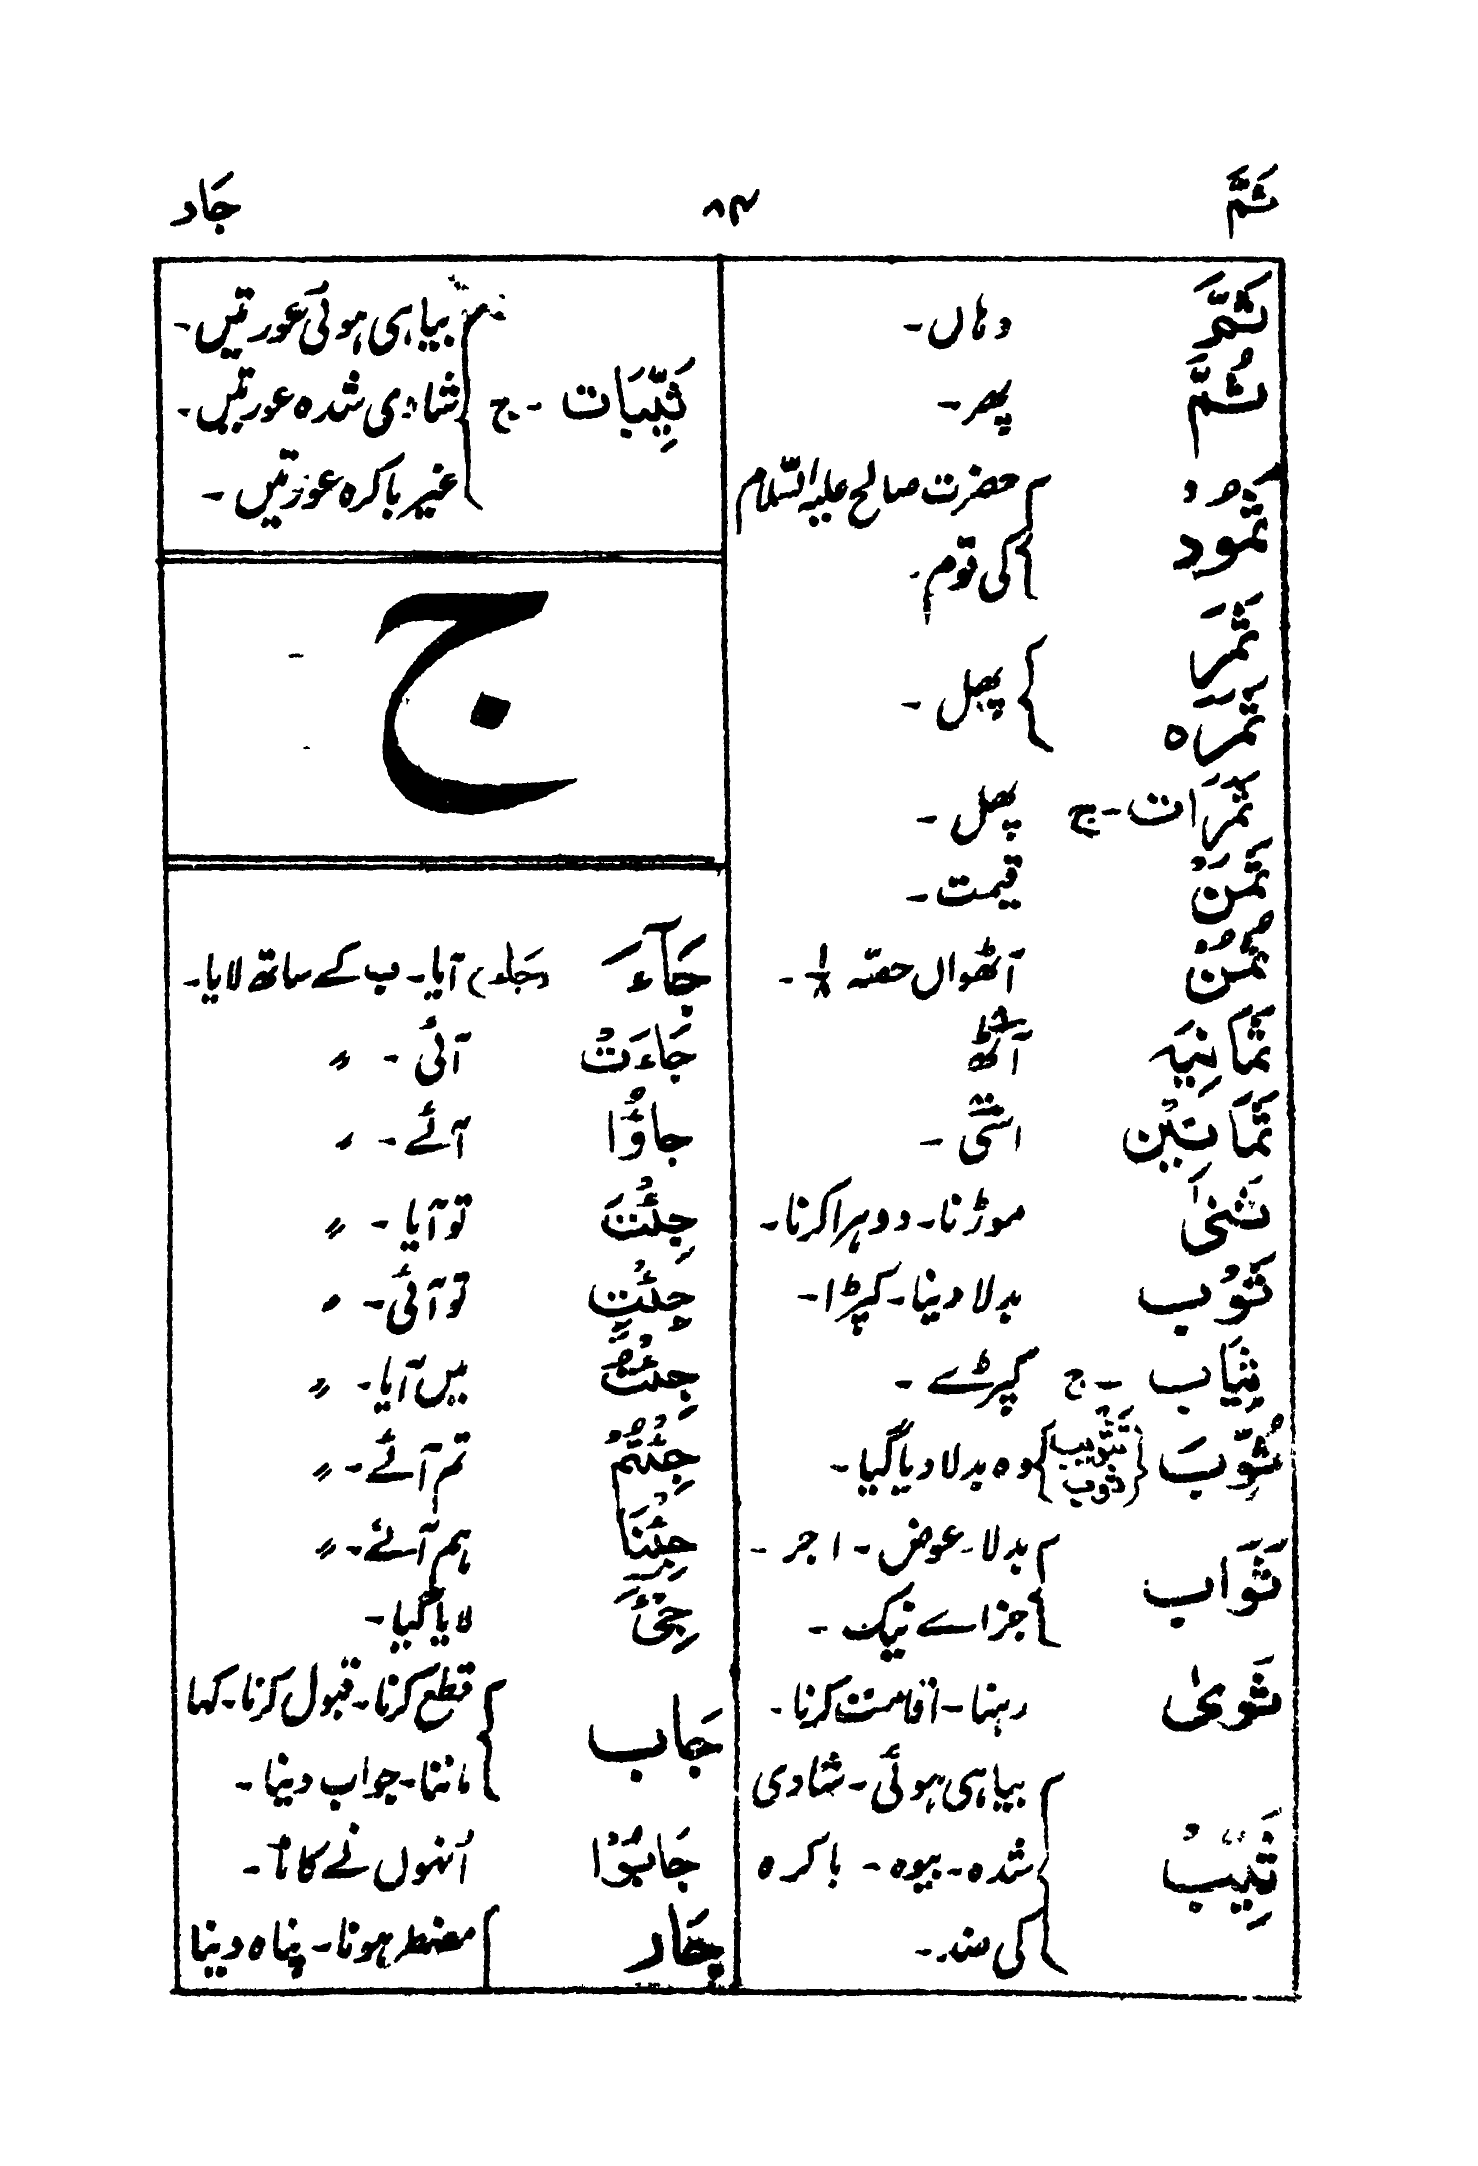 ثَمَّ ۸۴ جَاد
ثَمَّ وہاں۔
ثُمَّ پھر۔
ثَمُوْدُ حضرت صالح علیہ السّلام
کی قوم۔
ثَمَر
ثَمَرَہ پھل۔
ثَمَرَات۔ج پھل۔
ثَمَنْ قیمت۔
ثُمُنْ آٹھواں حصّہ ۱/۸۔
ثَمَانِیَہ آٹھ ۸
ثَمَانِیْن اسّی ۸۰۔
ثَنٰی موڑنا۔ دوہرا کرنا۔
ثَوْب بدلا دینا۔ کپڑا۔
ثِیَاب ۔ج کپڑے۔
ثُوِّبَ {تثویب ثوب} وہ بدلا دیا گیا۔
ثَوَاب بدلا۔ عوض۔ اجر۔
جزاے نیک۔
ثَویٰ رہنا۔ اقامت کرنا۔
ثَیِّبْ بیاہی ہوئی۔ شادی
شدہ۔ بیوہ۔ باکرہ
کی ضد۔
ثَیِّبَات۔ج بیاہی ہوئی عورتیں۔
شادی شدہ عورتیں۔
غیر باکرہ عورتیں۔
ج
جَآءَ آیا۔ ب کے ساتھ لایا۔
جَاءَتْ آئی۔ 〃
جاؤُا آئے۔ 〃
جِئْتَ تو آیا۔ 〃
جِئْتِ تو آئی۔ 〃
جِئْتُ میں آیا۔ 〃
جِئْتُمْ تم آئے۔ 〃
جِئْنَا ہم آئے۔ 〃
جِیْٔ لایا گیا۔
جَاب قطع کرنا۔ قبول کرنا۔ کہا
ماننا۔ جواب دینا۔
جَابُوْا اُنہوں نے کاٹا۔
جَار مضطر ہونا۔ پناہ دینا